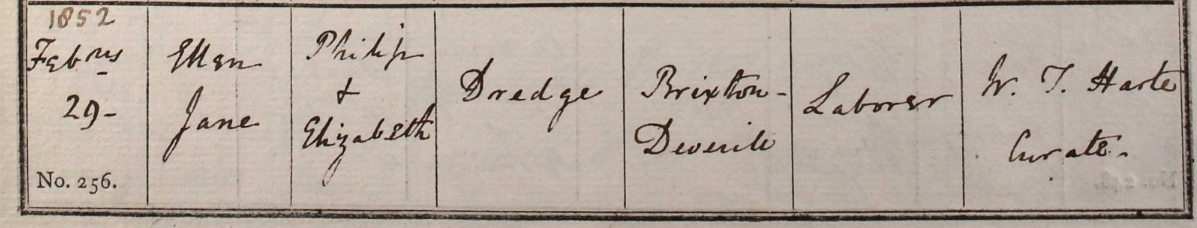 1852
Febry
29-
No. 256.
Ellen
Jane
Philip
+
Elizabeth
Dredge
Brixton-
Deverile
Laborer
W. T. Harte
Curate.